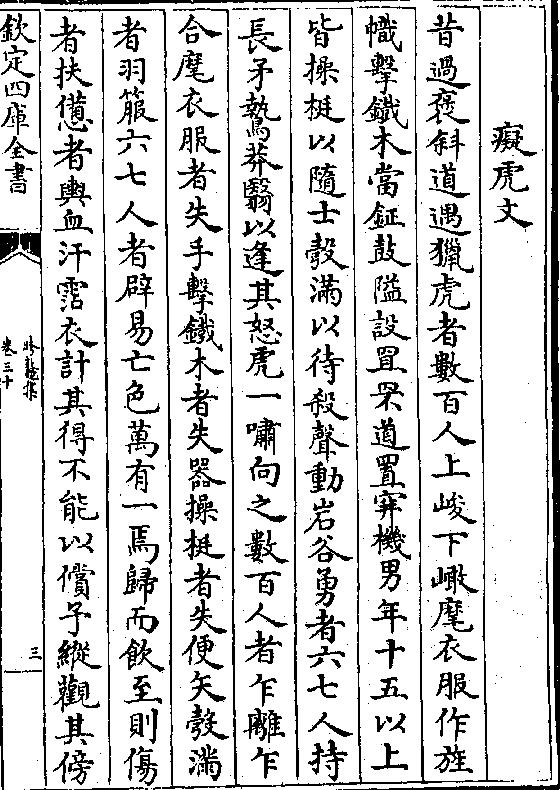 癡虎文
昔過褒斜道遇獵虎者數百人上峻下巇麾衣服作旌
幟擊鐵木當鉦鼓隘設罝罘道置穽機男年十五以上
皆操梃以隨士彀滿以待殺聲動岩谷勇者六七人持
長矛驇莽翳以逢其怒虎一嘯向之數百人者乍離乍
合麾衣服者失手擊鐵木者失器操梃者失便矢彀滿
者羽箙六七人者辟易亡色萬有一焉歸而飲至則傷
者扶憊者輿血汗霑衣計其得不能以償予縱觀其傍
欽定四庫全書
卷三十
三